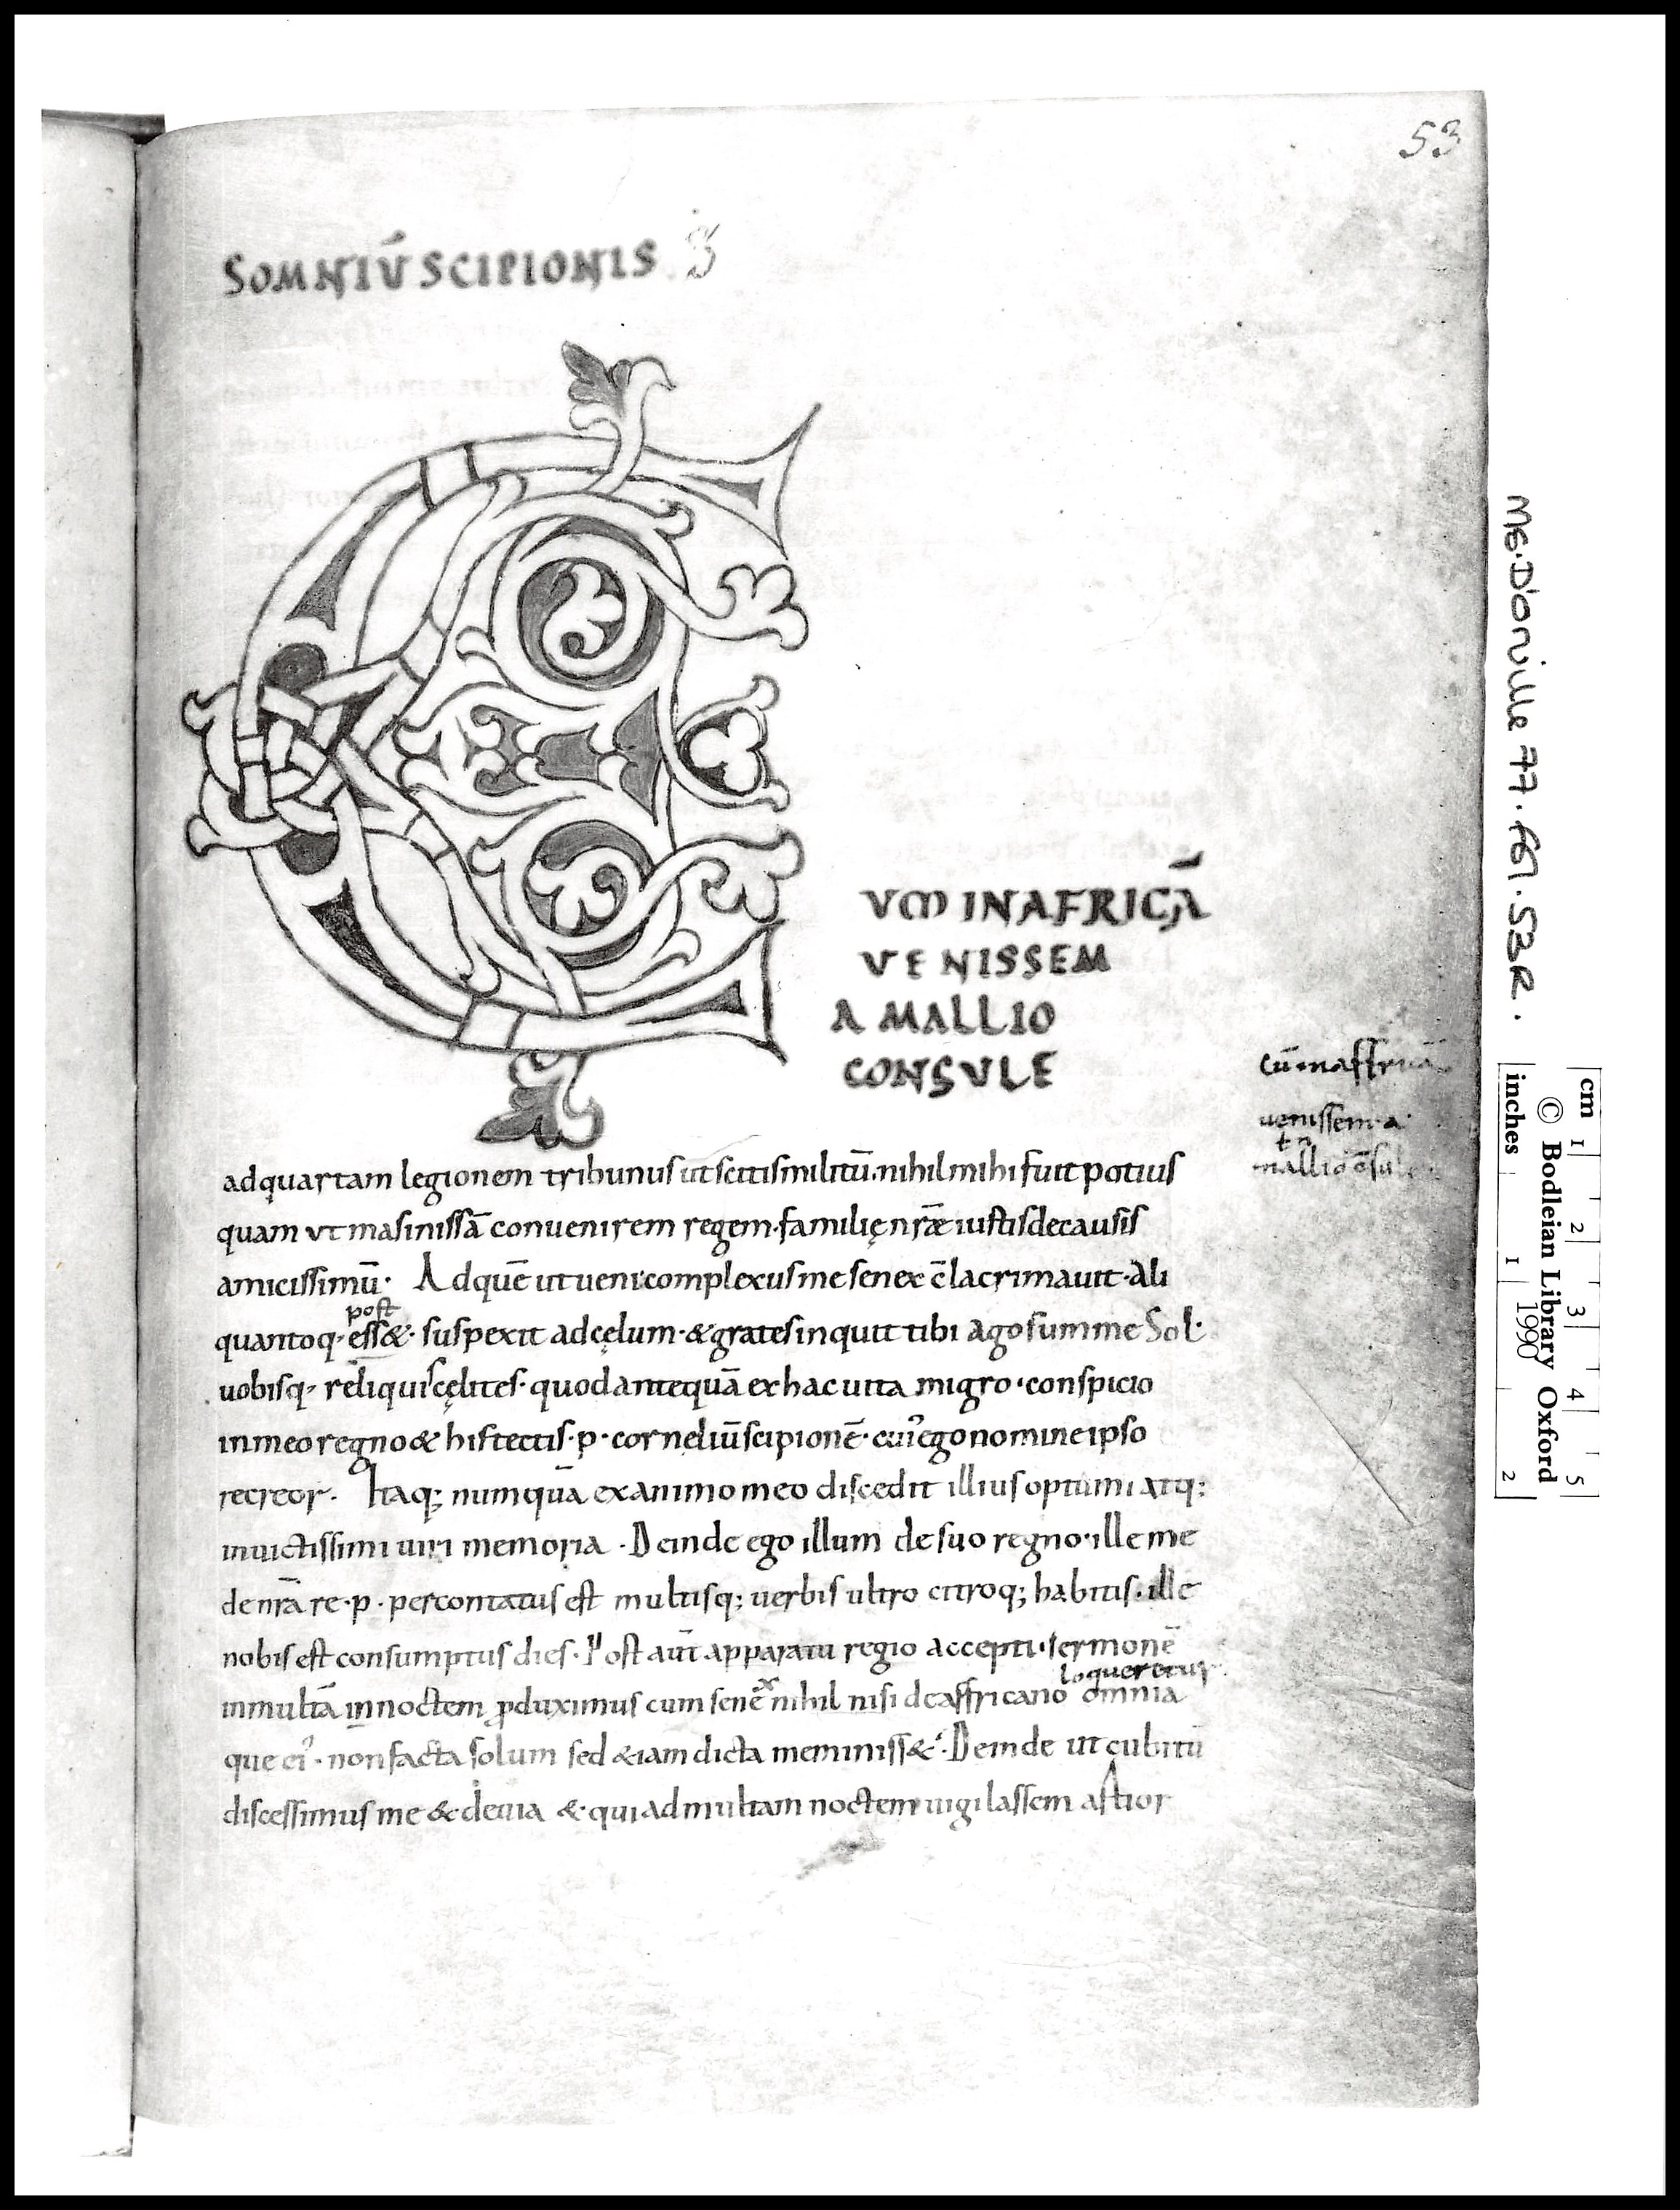 53
SOMNIŪ SCIPIONIS
C
VM IN AFRICĀ
VENISSEM
A MALLIO
CONSULE
ad quartam legionem tribunus ut scitis militū. nihil mihi fuit potius
quam ut masinissā convenirem regem. familię nr̄æ iustis de causis
amicissimū. Ad quē ut veni complexus me senex c̄lacrimavit. Ali
post
quantoq. ess&. suspexit ad cęlum. & grates inquit tibi ago summe Sol.
vobisq. reliqui cęlites. quod antequā ex hac vita migro. conspicio
in meo regno & his tectis. p. corneliū scipionē. cui' ego nomine ipso
recreor. Itaq; numquā ex animo meo discedit illius optumi atq;
invictissimi viri memoria. Deinde ego illum de suo regno. ille me
de nr̄a re. p. percontatus est multisq; verbis ultro citroq; habitis. ille
nobis est consumptus dies. Post aūt apparatu regio accepti. sermonē
loqueretur
in multā in noctem ꝓduximus cum senex nihil nisi de affricano omnia
que ei'. non facta solum sed &iam dicta meminiss&. Deinde ut cubitū
discessimus me & de via & qui ad multam noctem vigilassem artior
cū in affricā
venissem. a
mallio c̄sule
MS. D'orville 77. fol. 53R.
cm 1 2 3 4 5
© Bodleian Library Oxford
1990
inches 1 2